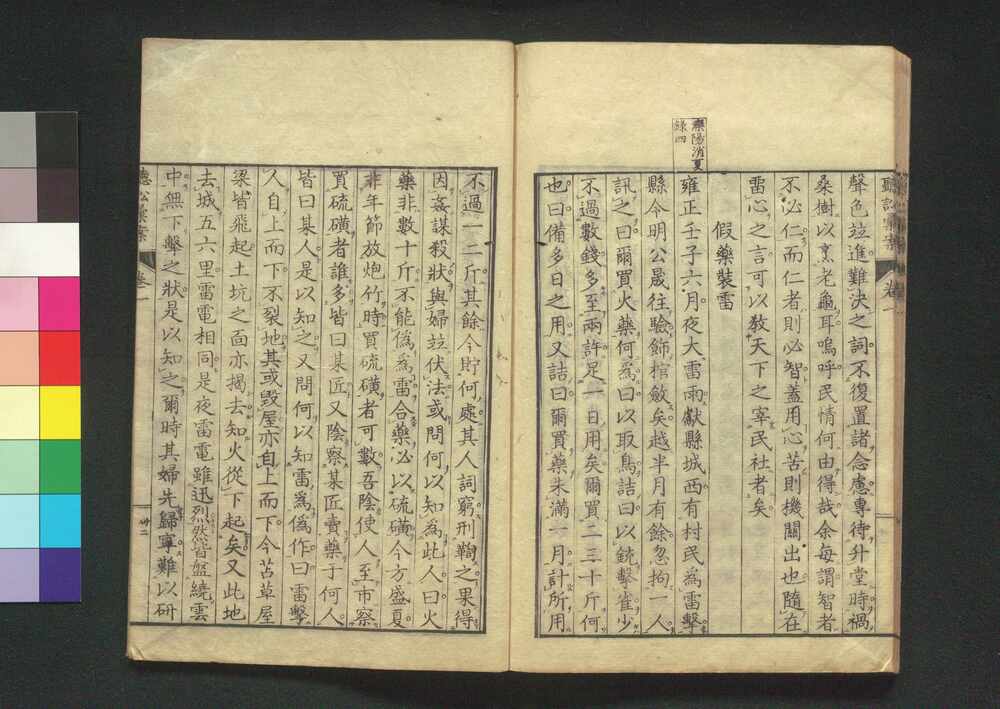 聽訟彙案 卷一
聲色竝進難決之詞不復置諸念慮專待升堂時禍
桑樹以烹老龜耳嗚呼民情何由得哉余每謂智者
不必仁而仁者則必智蓋用心苦則機關出也隨在
雷心之言可以敎天下之宰民社者矣
假藥裝雷
灤陽消夏
錄四
雍正壬子六月夜大雷雨獻縣城西有村民爲雷擊
縣令明公晟往驗飾棺斂矣越半月有餘忽拘一人
訊之曰爾買火藥何爲曰以取鳥詰曰以銃擊雀少
不過數錢多至兩許足一日用矣爾買二三十斤何
也曰備多日之用又詰曰爾買藥未滿一月計所用
不過一二斤其餘今貯何處其人詞窮刑鞫之果得
因姦謀殺狀與婦竝伏法或問何以知為此人曰火
藥非數十斤不能僞爲雷合藥必以硫磺今方盛夏
非年節放炮竹時買硫磺者可數吾陰使人至市察
買硫磺者誰多皆曰某匠又陰察某匠賣藥于何人
皆曰某人是以知之又問何以知雷爲僞作曰雷擊
人自上而下不裂地其或毀屋亦自上而下今苫草屋
梁皆飛起土坑之面亦揭去知火從下起矣又此地
去城五六里雷電相同是夜雷電雖迅烈然皆盤繞雲
中無下擊之狀是以知之爾時其婦先歸寧難以研
聽訟彙案 卷一 卅二